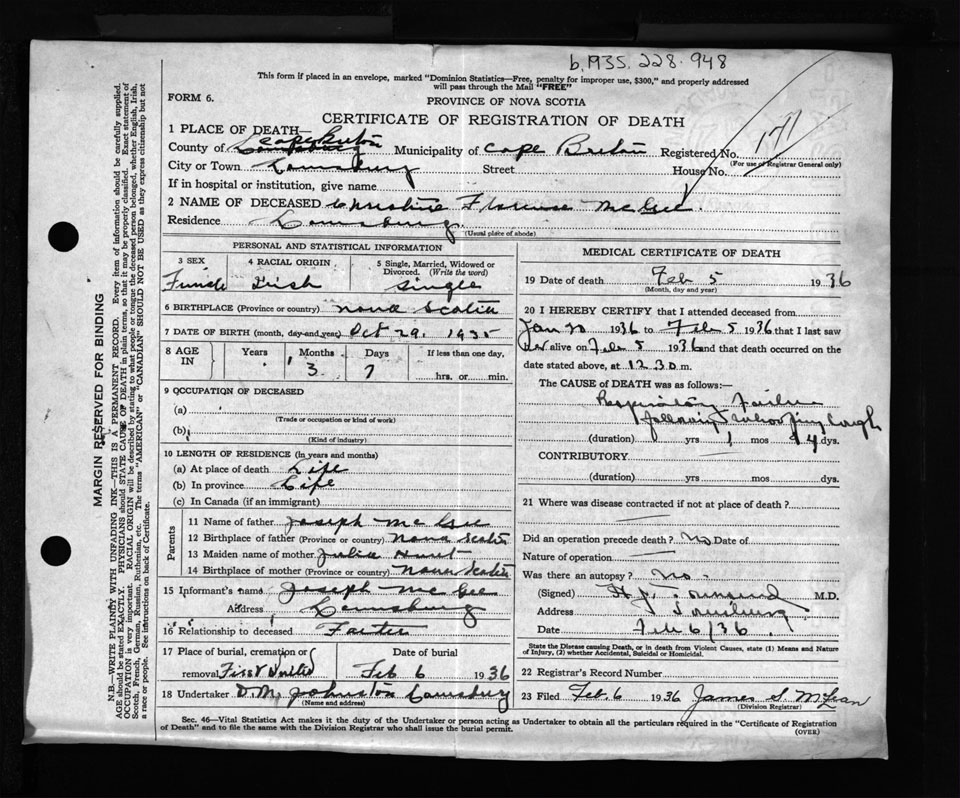 b.1935.228.948
This form if placed in an envelope, marked "Dominion Statistics—Free, penalty for improper use, $300," and properly addressed
will pass through the Mail "FREE"
FORM 6.
PROVINCE OF NOVA SCOTIA
CERTIFICATE OF REGISTRATION OF DEATH
1 PLACE OF DEATH—
County of Cape Breton Municipality of Cape Breton Registered No. 171
(For use of Registrar General only)
City or Town Louisburg Street House No.
If in hospital or institution, give name
2 NAME OF DECEASED Christine Florence McGee
Residence Louisburg
(Usual place of abode)
PERSONAL AND STATISTICAL INFORMATION
3 SEX 4 RACIAL ORIGIN 5 Single, Married, Widowed or
Divorced. (Write the word)
Female Irish Single
6 BIRTHPLACE (Province or country) Nova Scotia
7 DATE OF BIRTH (month, day and year) Oct 29, 1935
8 AGE IN Years Months Days If less than one day,
3 7 hrs. or min.
9 OCCUPATION OF DECEASED
(a)
(Trade or occupation or kind of work)
(b)
(Kind of industry)
10 LENGTH OF RESIDENCE (In years and months)
(a) At place of death Life
(b) In province Life
(c) In Canada (if an immigrant)
Parents
11 Name of father Joseph McGee
12 Birthplace of father (Province or country) Nova Scotia
13 Maiden name of mother Julia Hunt
14 Birthplace of mother (Province or country) Nova Scotia
15 Informant's name Joseph McGee
Address Louisburg
16 Relationship to deceased Father
17 Place of burial, cremation or Date of burial
removal Feb 6 1936
18 Undertaker D.M. Johnston Louisburg
(Name and address)
MEDICAL CERTIFICATE OF DEATH
19 Date of death Feb 5 1936
(Month, day and year)
20 I HEREBY CERTIFY that I attended deceased from
Jan 20 1936 to Feb 5 1936 that I last saw
her alive on Feb 5 1936 and that death occurred on the
date stated above, at 12.30 m.
The CAUSE of DEATH was as follows:—
Respiratory Failure
following Whooping Cough
(duration) yrs 1 mos 14 dys.
CONTRIBUTORY
(duration) yrs. mos. dys.
21 Where was disease contracted if not at place of death?
Did an operation precede death? No Date of
Nature of operation
Was there an autopsy? No.
(Signed) M.D.
Address Louisburg
Date Feb 6/36
State the Disease causing Death, or in death from Violent Causes, state (1) Means and Nature
of Injury, (2) whether Accidental, Suicidal or Homicidal.
22 Registrar's Record Number
23 Filed Feb. 6 1936 James S. McLean
(Division Registrar)
Sec. 46—Vital Statistics Act makes it the duty of the Undertaker or person acting as Undertaker to obtain all the particulars required in the "Certificate of Registration
of Death" and to file the same with the Division Registrar who shall issue the burial permit.
(OVER)
MARGIN RESERVED FOR BINDING
N.B.—WRITE PLAINLY WITH UNFADING INK—THIS IS A PERMANENT RECORD. Every item of information should be carefully supplied.
AGE should be stated EXACTLY. PHYSICIANS should STATE CAUSE OF DEATH in plain terms, so that it may be properly classified. Exact statement of
OCCUPATION is very important. RACIAL ORIGIN will be described by stating to what people or tongue the deceased person belonged, whether English, Irish,
Scotch, French, German, Russian, Ruthenian, etc. The terms "AMERICAN" or "CANADIAN" SHOULD NOT BE USED as they express citizenship but not
a race or people. See instructions on back of Certificate.